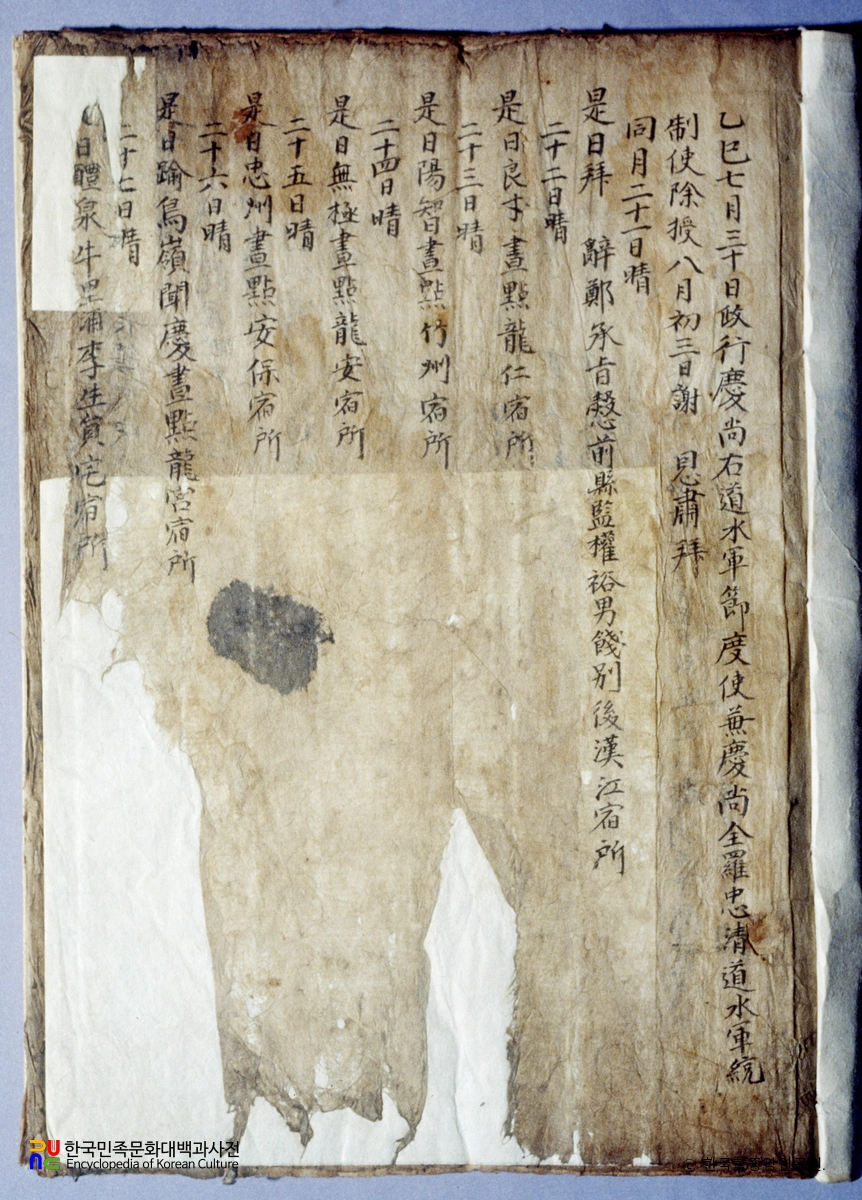 乙巳七月三十日政行慶尚右道水軍節度使兼慶尚全羅忠清道水軍統
制使除授八月初三日謝 恩肅拜
同月二十一日晴
是日拜 辭鄭承旨慤前縣監權裕男餞別後漢江宿所
二十二日晴
是日良才晝點龍仁宿所
二十三日晴
是日陽智晝點竹州宿所
二十四日晴
是日無極晝點龍安宿所
二十五日晴
是日忠州晝點安保宿所
二十六日晴
是日踰鳥嶺聞慶晝點龍宮宿所
二十七日晴
日醴泉牛 浦李生員宅宿所
한국민족문화대백과사전
Encyclopedia of Korean Culture